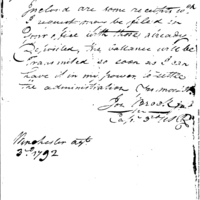 Inclosed are some receipts wch
I request may be filed in
your office with those already
deposited, the ballance will be
transmited so soon as I can
have it in my power to settle
the administration
Jno Brook
Capt 3d
Winchester
3d 1792